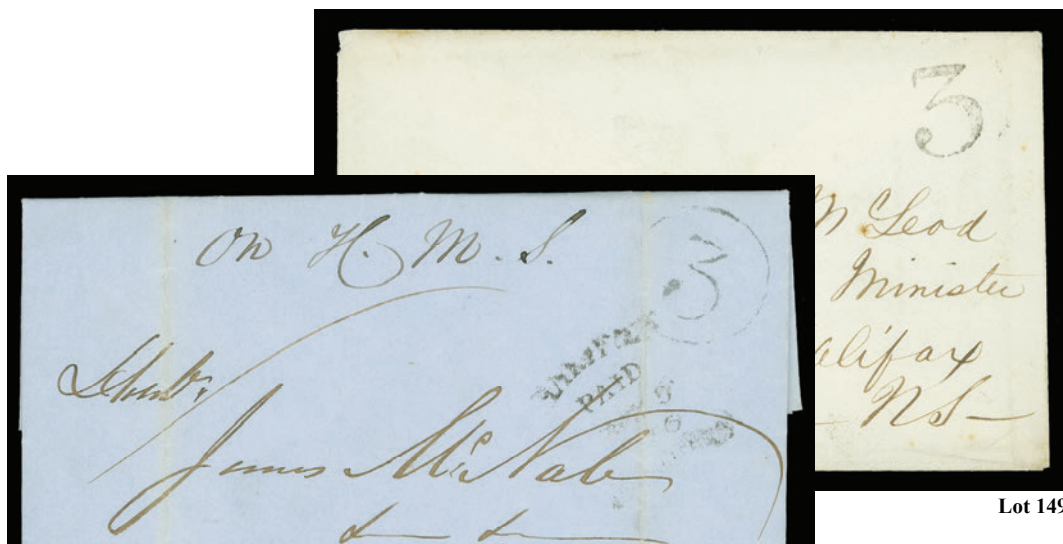 3
McLeod
Minister
alifax
NS
On H. M. S.
3
HALIFAX
PAID
6
James McNab
Lot 149